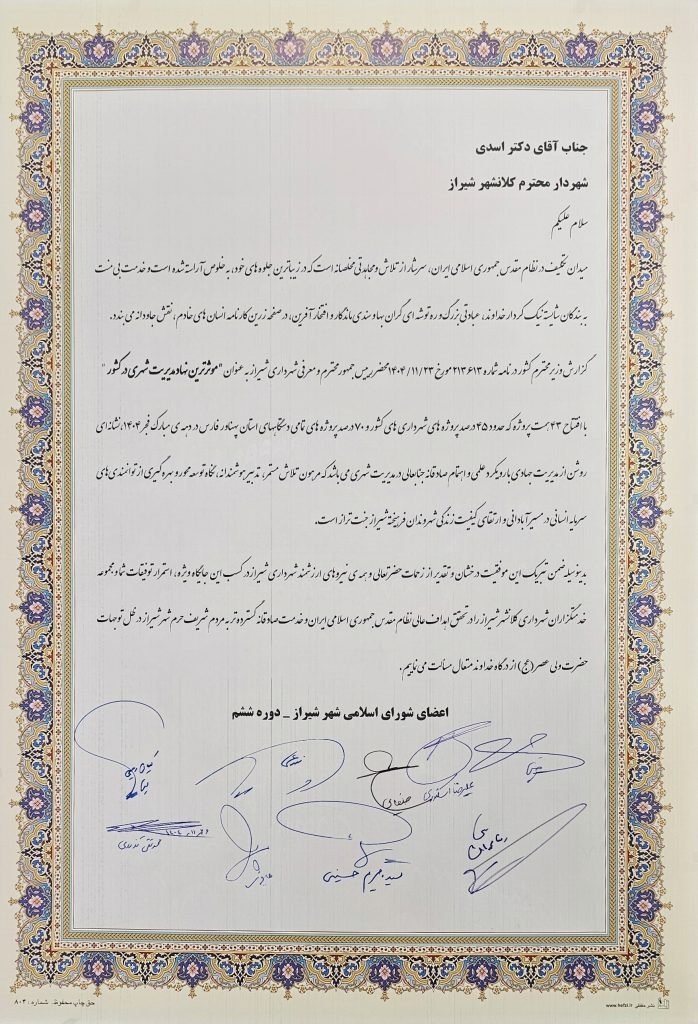 جناب آقای دکتر اسدی
شهردار محترم کلانشهر شیراز
سلام علیکم
میدان تکلیف در نظام مقدس جمهوری اسلامی ایران، سرشار از تلاش و مجاهدتی مخلصانه است که در زیباترین جلوه های خود، به خلوص آراسته شده است و خدمت بی منت
به بندگان شایسته نیک کردار خداوند، عبادتی بزرگ و ره توشه ای گران بها و سندی ماندگار و افتخار آفرین، در صفحه زرین کارنامه انسان های خادم، نقش جاودانه می بندد.
گزارش وزیر محترم کشور در نامه شماره ۲۱۳۶۱۳ مورخ ۱۴۰۴/۱۱/۲۳ محضر رییس جمهور محترم و معرفی شهرداری شیراز به عنوان "موثرترین نهاد مدیریت شهری در کشور"
با افتتاح ۴۳ همت پروژه که حدود ۴۵ درصد پروژه های شهرداری های کشور و ۷۰ درصد پروژه های تمامی دستگاههای استان پهناور فارس در دهه ی مبارک فجر ۱۴۰۴، نشانه ای
روشن از مدیریت جهادی با رویکرد علمی و اهتمام صادقانه جنابعالی در مدیریت شهری می باشد که مرهون تلاش مستمر، تدبیر هوشمندانه، نگاه توسعه محور و بهره گیری از توانمندی های
سرمایه انسانی در مسیر آبادانی و ارتقای کیفیت زندگی شهروندان فرهیخته شیراز جنت تراز است.
بدینوسیله ضمن تبریک این موفقیت درخشان و تقدیر از زحمات حضرتعالی و همه ی نیروهای ارزشمند شهرداری شیراز در کسب این جایگاه ویژه، استمرار توفیقات شما و مجموعه
خدمتگزاران شهرداری کلانشهر شیراز را در تحقق اهداف عالی نظام مقدس جمهوری اسلامی ایران و خدمت صادقانه گسترده تر به مردم شریف حرم شهر شیراز در ظل توجهات
حضرت ولی عصر (عج) از درگاه خداوند متعال مسألت می نماییم.
اعضای شورای اسلامی شهر شیراز _ دوره ششم
علیرضا اسکندری
سیده مریم حسینی
نشر حافظی www.hefzi.ir
حق چاپ محفوظ. شماره: ۸۰۴